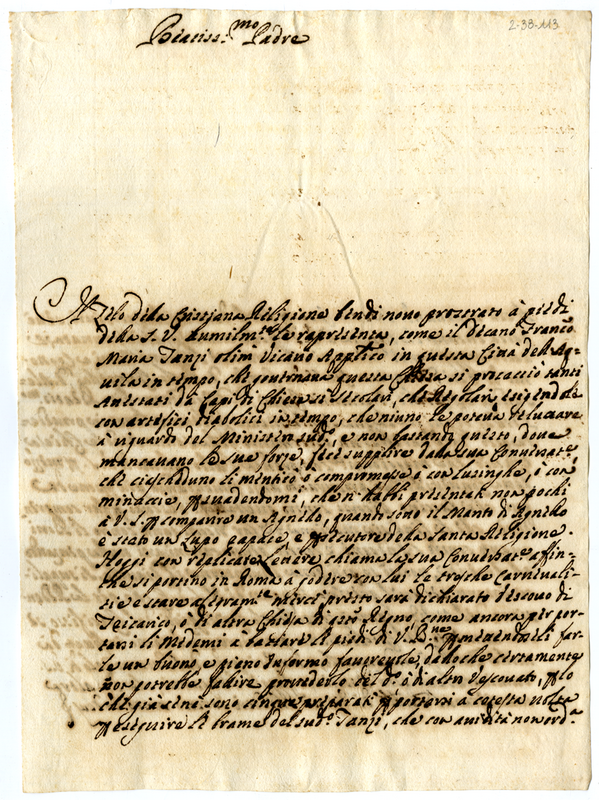 2-38-113
Beatiss.mo Padre
Il Zelo della Cristiana Religione bendi novo prostrato à piedi
della S. V. humilm.te le rapresenta, come il Decano Franco
Maria Tanzi olim Vicario Appḷico in questa Città dell'Aq-
uila in tempo, che governava questa Chiesa si procacciò tanti
Attestati da Capi di Chiese si secolari, che Regolari, esigendole
con artefici diabolici in tempo, che niuno le poteva deluciare
à riguardo del Ministero sud.o, e non bastando questo, dove
mancavano le sue forze, fece supplire dalla sua Conversat.e,
che ciascheduno li menticò ò compromesse ò con lusinghe, ò con
minaccie, persuadendomi, che n'habbi presentati non pochi
à V. S. per comparire un Agnello, quando sotto il Manto di Agnello
è stato un Lupo rapace, e persecutore della Santa Religione.
Hoggi con replicate lettere chiama la sua Conversat.e affin-
che si portino in Roma à godere con lui le tresche Carneuali-
tie e stare allegram.te mercè presto sarà dichiarato Vescovo di
Teicarico, ò di altra Chiesa di q.sto Regno, come ancora per por-
tarsi li Medemi à basciare li piedi di V. B.ne promettendoli far-
le un buono, e pieno informo faurevole, dal che certamente
non potrebbe fallire provederlo del d.o ò d'altri Vescovati, per lo
che già sene sono cinque preparati per portarsi à cotesta volta
per eseguire le brame del sud.o Tanzi, che con avidità non ord.a